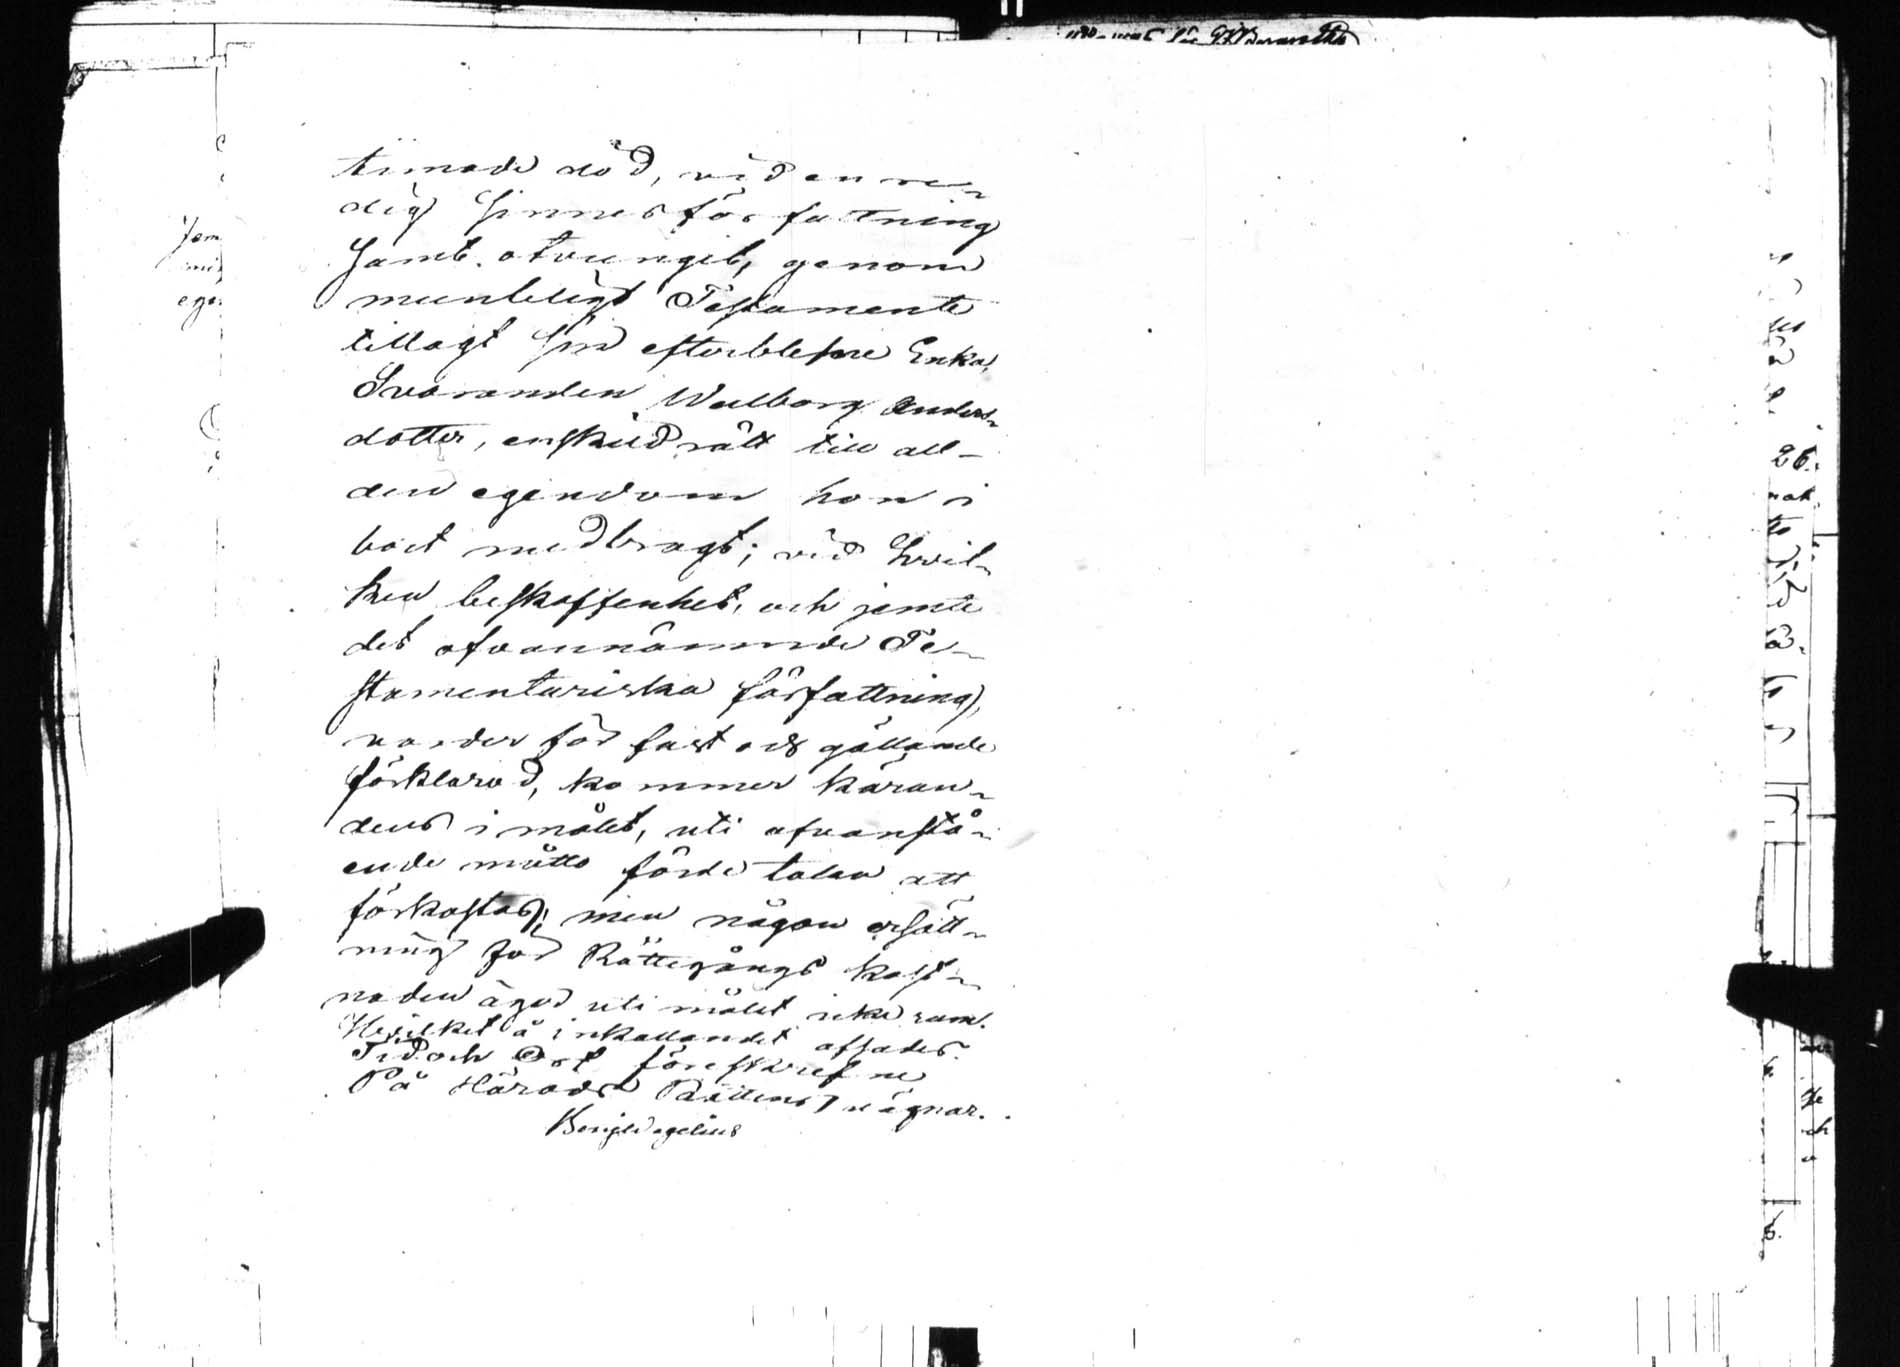 timade död, vid en re-
dig sinnesförfattning
samt otvunget, genom
munteligt Testamente
tillagt sin efterblefne Enka,
Svaranden Walborg Anders-
dotter, enskild rätt till all
den egendom hon i
boet medbragt; vid hvil-
ken beskaffenhet, och jemte
det ofvannämnde Te-
stamentariska författning,
varder för fast och gällande
förklarad, kommer käran-
dens i målet, uti ofvanstå-
ende måtto förde talan att
förkastas; men någon ersätt-
ning för Rättegångs kost-
naden äger uti målet icke rum.
Hvilket å inkallandet afsades.
Tid och Ort föreskrefne
På Härads Rättens vägnar.